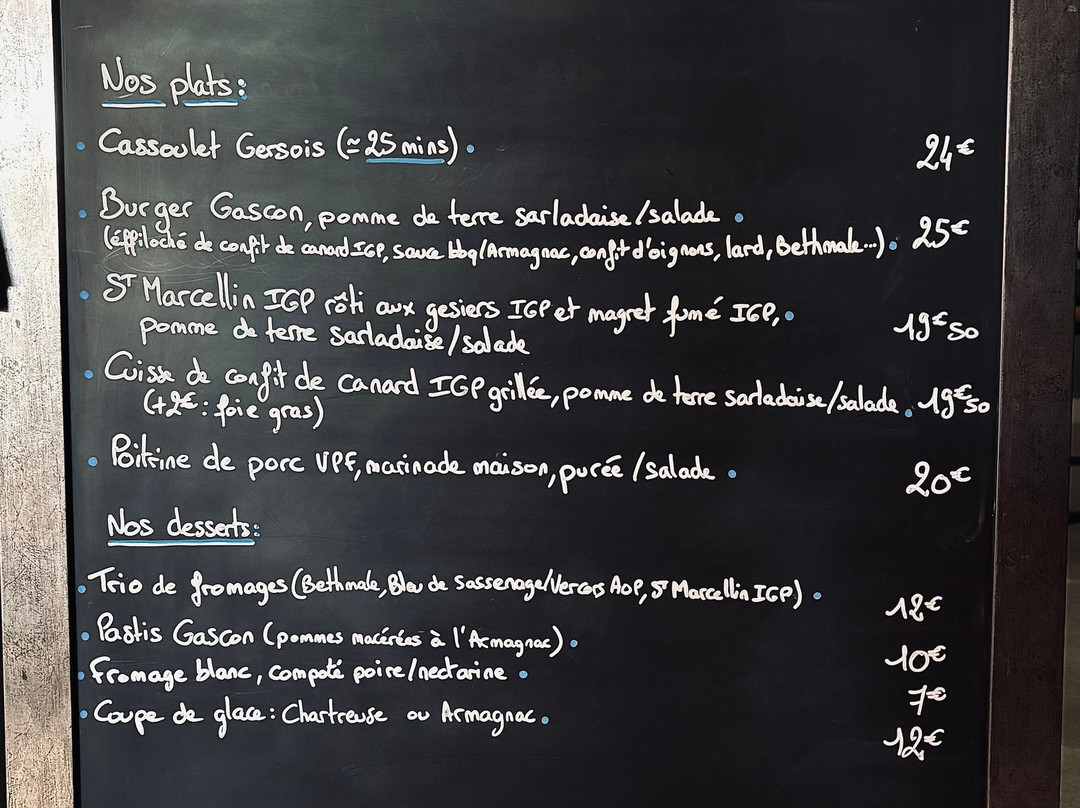 Nos plats:
• Cassoulet Gersois (≃ 25 mins). 24€
• Burger Gascon, pomme de terre sarladaise/salade.
(éffiloché de confit de canard IGP, sauce bbq/Armagnac, confit d'oignons, lard, Bethmale...). 25€
• ST Marcellin IGP rôti aux gesiers IGP et magret fumé IGP,
pomme de terre sarladaise/salade 19€50
• Cuisse de confit de canard IGP grillée, pomme de terre sarladaise/salade. 19€50
(+2€: foie gras)
• Poitrine de porc VPF, marinade maison, purée/salade. 20€
Nos desserts:
• Trio de fromages (Bethmale, Bleu de Sassenage/Vercors AOP, ST Marcellin IGP). 12€
• Pastis Gascon (pommes macérées à l'Armagnac). 10€
• Fromage blanc, compoté poire/nectarine. 7€
• Coupe de glace: Chartreuse ou Armagnac. 12€